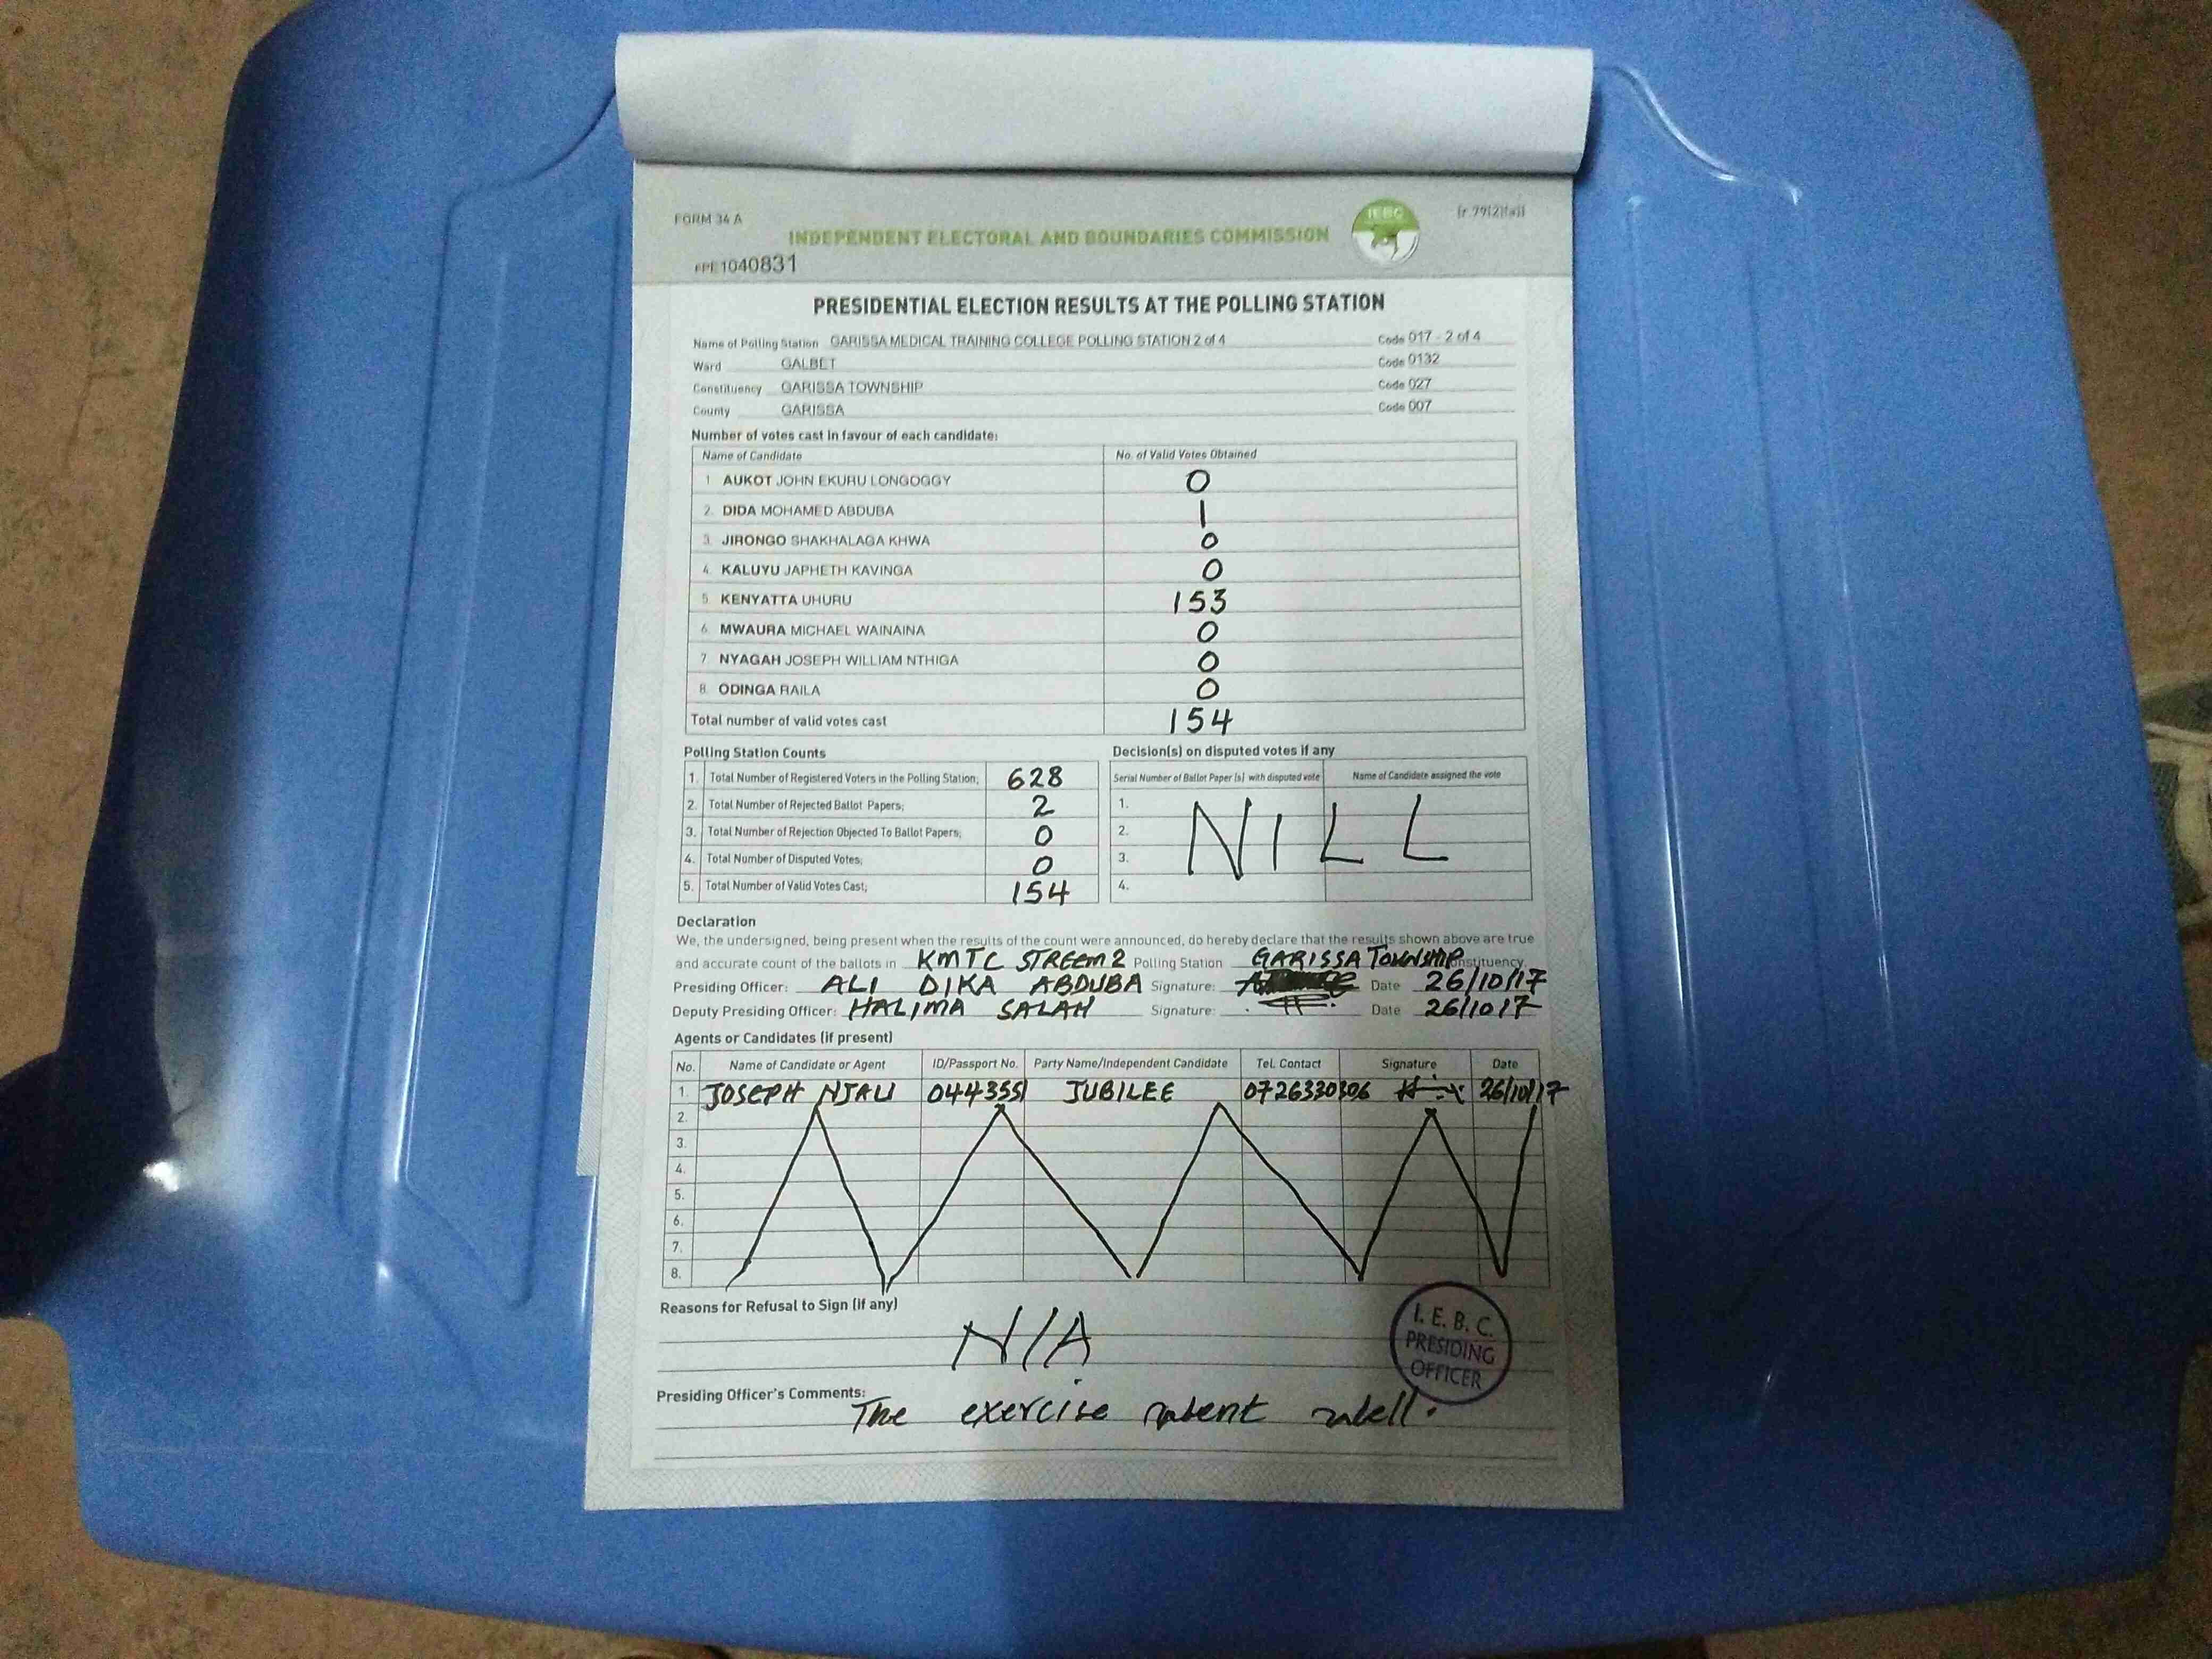 FORM 34 A
INDEPENDENT ELECTORAL AND BOUNDARIES COMMISSION
IEBC
1040831
PRESIDENTIAL ELECTION RESULTS AT THE POLLING STATION
Name of Polling Station GARISSA MEDICAL TRAINING COLLEGE POLLING STATION 2 of 4 Code 017 - 2 of 4
Ward GALBET Code 0132
Constituency GARISSA TOWNSHIP Code 027
County GARISSA Code 007
Number of votes cast in favour of each candidate:
Name of Candidate No. of Valid Votes Obtained
1 AUKOT JOHN EKURU LONGOGGY 0
2. DIDA MOHAMED ABDUBA 1
3. JIRONGO SHAKHALAGA KHWA 0
4. KALUYU JAPHETH KAVINGA 0
5 KENYATTA UHURU 153
6. MWAURA MICHAEL WAINAINA 0
7. NYAGAH JOSEPH WILLIAM NTHIGA 0
8. ODINGA RAILA 0
Total number of valid votes cast 154
Polling Station Counts
1. Total Number of Registered Voters in the Polling Station; 628
2. Total Number of Rejected Ballot Papers; 2
3. Total Number of Rejection Objected To Ballot Papers; 0
4. Total Number of Disputed Votes; 0
5. Total Number of Valid Votes Cast; 154
Decision(s) on disputed votes if any
Serial Number of Ballot Paper (s) with disputed vote Name of Candidate assigned the vote
1.
2.
3.
4.
NILL
Declaration
We, the undersigned, being present when the results of the count were announced, do hereby declare that the results shown above are true
and accurate count of the ballots in KMTC STREEM 2 Polling Station GARISSA TOWNSHIP Constituency.
Presiding Officer: ALI DIKA ABDUBA Signature: Date 26/10/17
Deputy Presiding Officer: HALIMA SALAH Signature: Date 26/10/17
Agents or Candidates (if present)
No. Name of Candidate or Agent ID/Passport No. Party Name/Independent Candidate Tel. Contact Signature Date
1. JOSEPH NJAU 0443551 JUBILEE 0726330306 26/10/17
2.
3.
4.
5.
6.
7.
8.
Reasons for Refusal to Sign (if any)
N/A
I. E. B. C.
PRESIDING
OFFICER
Presiding Officer's Comments: The exercise went well.